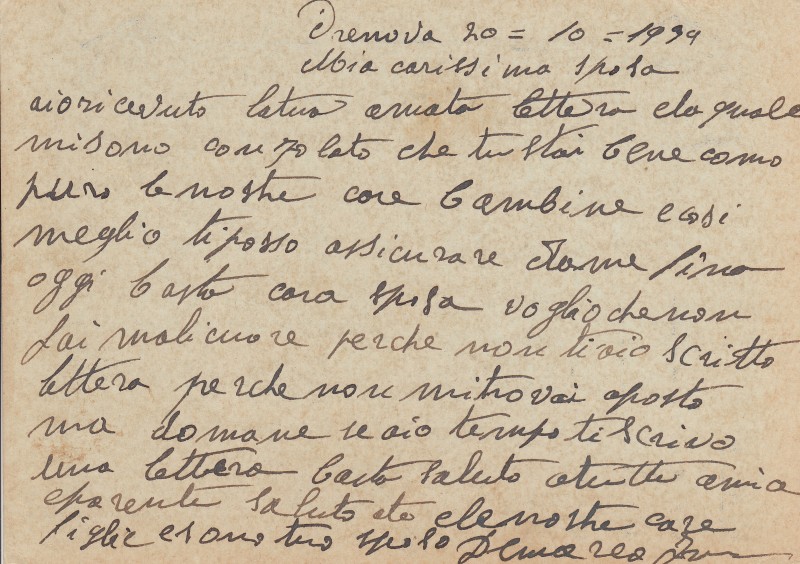 Drenova 20 = 10 = 1939
Mia carissima sposa
aioricevuto latua amata lettera claquale
misono conzolato che tu stai bene como
puro le nostre care bambine ecosi
meglio tiposso assicurare dame fino
oggi basto cara sposa vogliochenon
fai malicuore perche non tiaio scritto
lettera perchenon mitrovai aposto
ma domane seaio tempo tiscrivo
una lettera basto saluto atutti amice
eparente saluto ate elenostre care
figlie esono tuo sposo Demarco